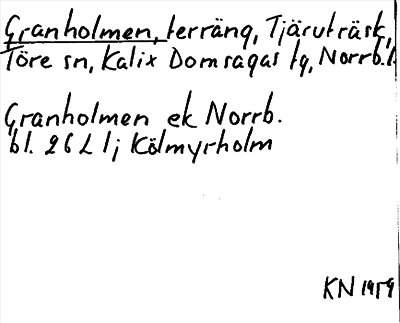 Granholmen, terräng, Tjäruträsk,
Töre sn, Kalix Domsagas tg, Norrb.l.
Granholmen ek Norrb.
bl. 26 L 1j Kölmyrholm
KN 1959